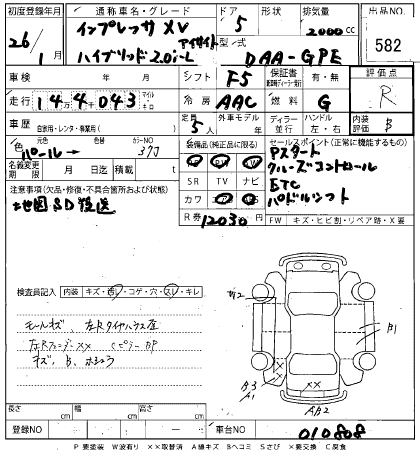 初度登録年月 通称車名・グレード ドア 形状 排気量 出品NO.
26 / 1 月 インプレッサ XV アイサイト 5 2000 cc 582
ハイブリッド 2.0i-L 型式 DAA-GPE
車検 年 月 シフト F5 保証書 有・無 評価点
走行 144043 マイル キロ 冷房 AAC 燃料 G R
車歴 自家用・レンタ・専業用( ) 定員 5人 外車モデル 年 ディーラー 並行 ハンドル 左・右 内装 B
色 元色 パール→ 色替 カラーNO 37J 装備品(純正品に限る) セールスポイント(正常に機能するもの)
Pスタート
名義変更期限 月 日迄 積載 t SR TV ナビ クルーズコントロール
ETC
注意事項(欠品・修復・不具合箇所および状態) カワ パドルシフト
地図SD後送 R券 12030 FW キズ・ヒビ割・リペア跡・X要
検査員記入 内装 キズ・汚レ・コゲ・穴・スレ・キレ
モールキズ、左Rタイヤハウス凸
左Rフェンダー××
キズ、B、
W2
B1
××
A3
A1
××
AB2
長さ cm 幅 cm 高さ cm
登録NO 車台NO 010808
P 要塗装 W波有り ××取替済 A線キズ Bヘコミ Sさび ×要交換 C腐食